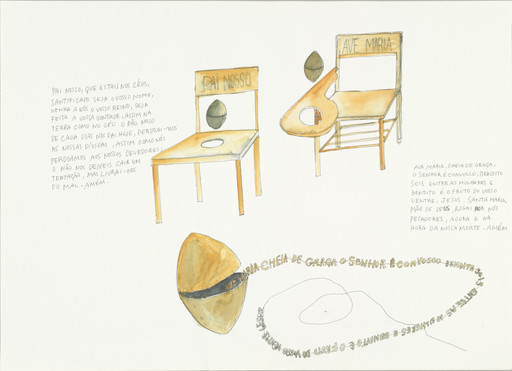 PAI NOSSO, QUE ESTAIS NOS CÉUS,
SANTIFICADO SEJA O VOSSO NOME,
VENHA A NÓS O VOSSO REINO, SEJA
FEITA A VOSSA VONTADE, ASSIM NA
TERRA COMO NO CÉU. O PÃO NOSSO
DE CADA DIA NOS DAI HOJE, PERDOAI-NOS
AS NOSSAS DÍVIDAS, ASSIM COMO NÓS
PERDOAMOS AOS NOSSOS DEVEDORES,
E NÃO NOS DEIXEIS CAIR EM
TENTAÇÃO, MAS LIVRAI-NOS
DO MAL. AMÉM.
PAI NOSSO
AVE MARIA
AVE MARIA, CHEIA DE GRAÇA,
O SENHOR É CONVOSCO, BENDITO
SOIS ENTRE AS MULHERES E
BENDITO É O FRUTO DO VOSSO
VENTRE, JESUS. SANTA MARIA,
MÃE DE DEUS, ROGAI POR NÓS
PECADORES, AGORA E NA
HORA DA NOSSA MORTE. AMÉM
MARIA CHEIA DE GRAÇA O SENHOR É CONVOSCO BENDITA SOIS ENTRE AS MULHERES BENDITO É O FRUTO DO VOSSO VENTRE JESUS